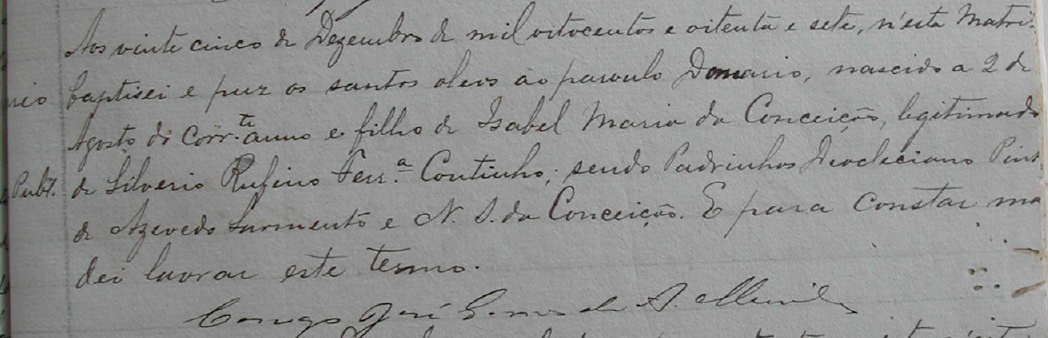 Aos vinte cinco de Dezembro de mil oitocentos e oitenta e sete, n'esta Matri
baptisei e puz os santos oleos ao parvulo, nascido a 2 de
Agosto do corr.te anno e filho de Isabel Maria da Conceição, legitimado
Publ. de Silverio Rufino Ferr.a Coutinho; sendo Padrinhos Deocleciano Pint
de Azevedo Sarmento e N. S. da Conceição. E para constar ma
dei lavrar este termo.
Conego José Gomes de A.